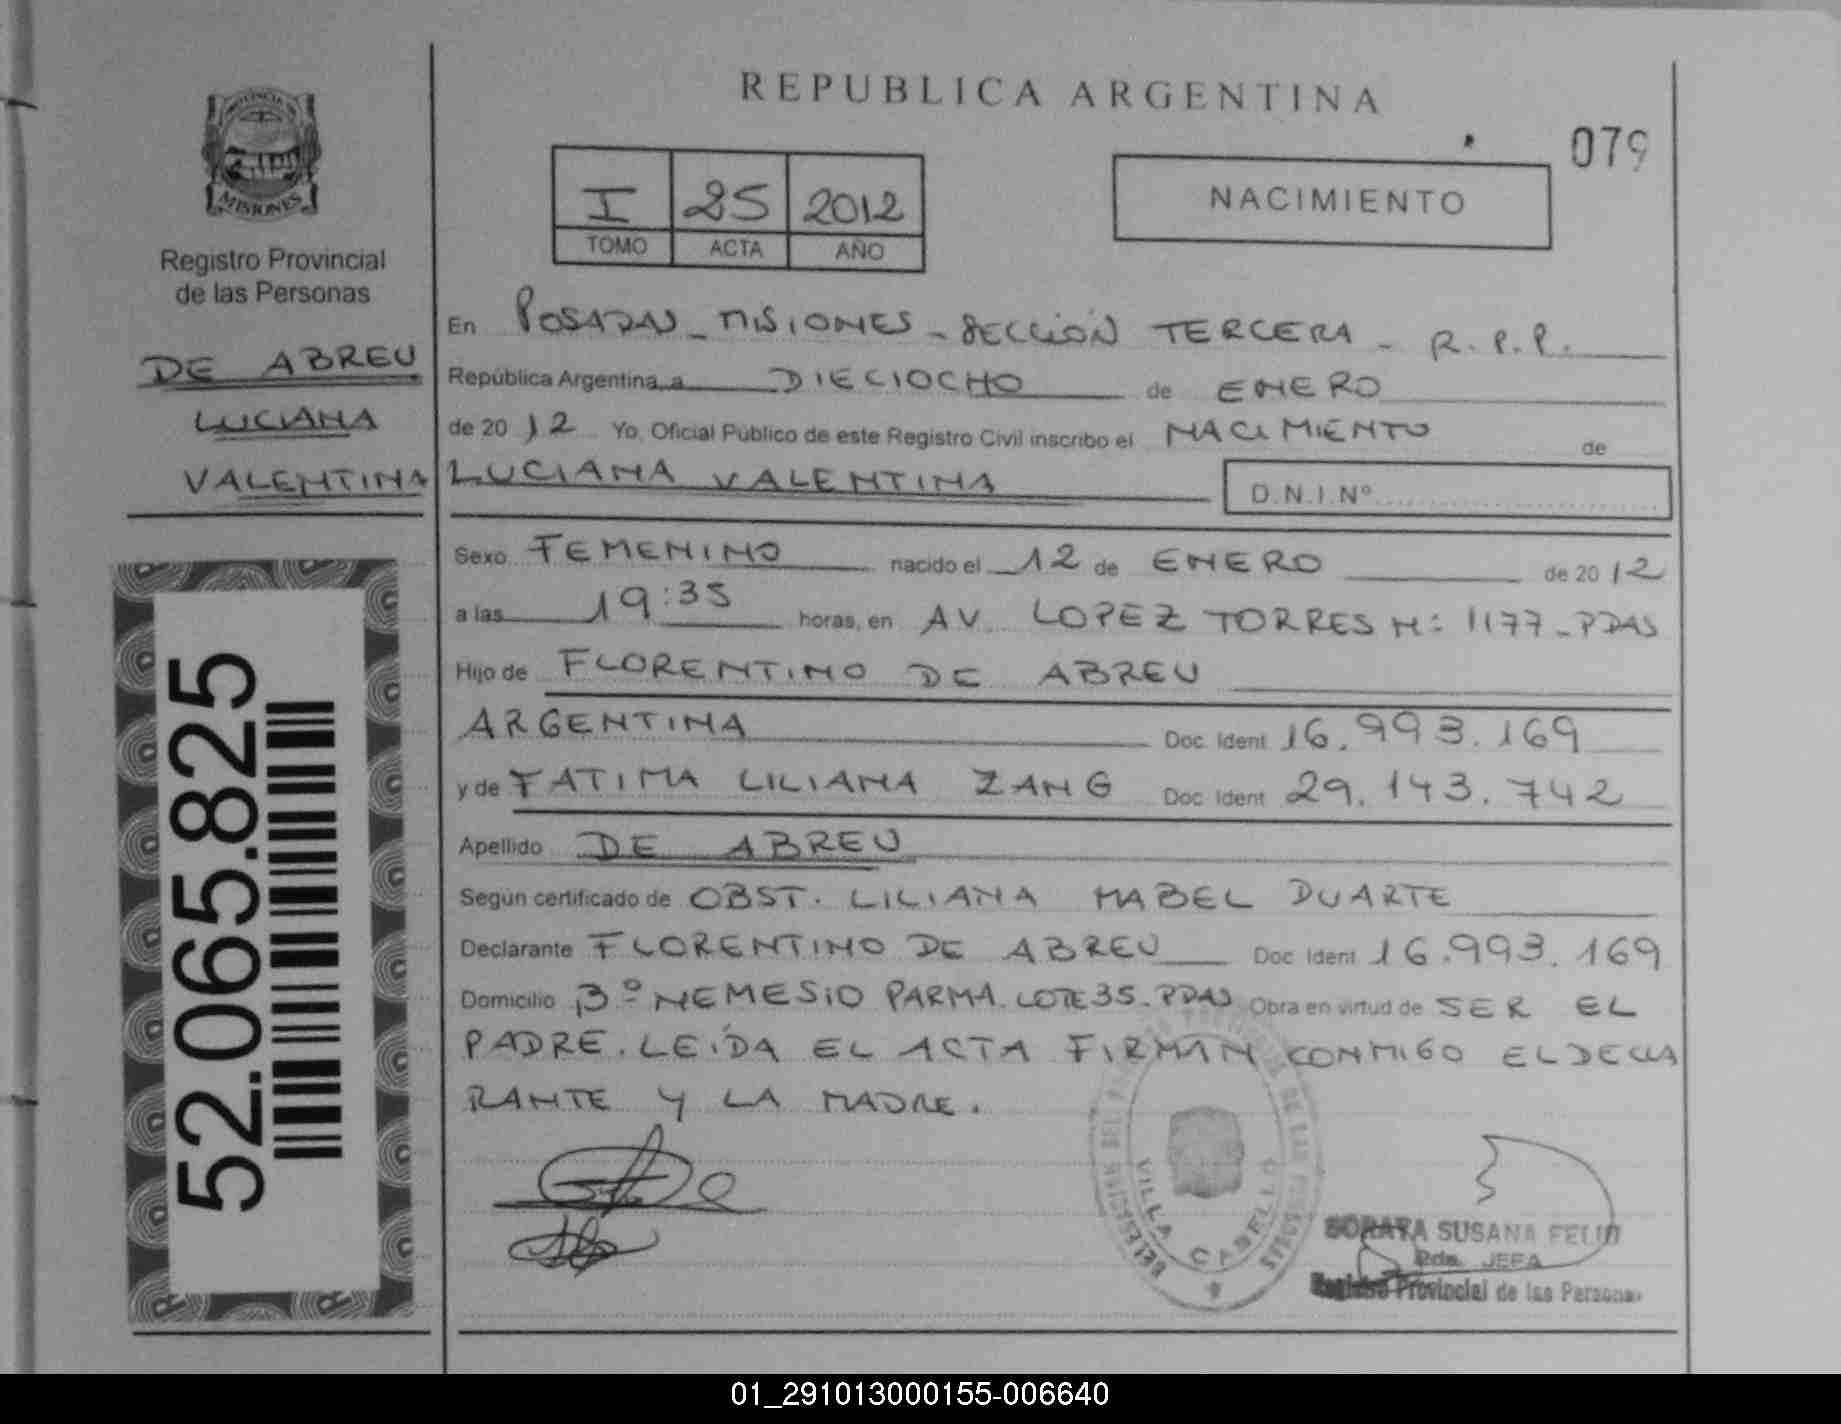 REPUBLICA ARGENTINA
079
PROVINCIA DE
MISIONES
Registro Provincial
de las Personas
DE ABREU
LUCIANA
VALENTINA
52.065.825
I 25 2012
TOMO ACTA AÑO
NACIMIENTO
En POSADAS - MISIONES - SECCIÓN TERCERA - R.P.P.
República Argentina, a DIECIOCHO de ENERO
de 2012 Yo, Oficial Público de este Registro Civil inscribo el NACIMIENTO de
LUCIANA VALENTINA D.N.I.Nº
Sexo FEMENINO nacido el 12 de ENERO de 2012
a las 19:35 horas, en AV. LOPEZ TORRES N: 1177 - PDAS
Hijo de FLORENTINO DE ABREU
ARGENTINA Doc. Ident 16.993.169
y de FATIMA LILIANA ZANG Doc Ident 29.143.742
Apellido DE ABREU
Según certificado de OBST. LILIANA MABEL DUARTE
Declarante FLORENTINO DE ABREU Doc Ident 16.993.169
Domicilio Bº NEMESIO PARMA. LOTE 35. PDAS Obra en virtud de SER EL
PADRE. LEÍDA EL ACTA FIRMAN CONMIGO EL DECLA
RANTE Y LA MADRE.
DELEGACION DEL REGISTRO PROVINCIAL DE LAS PERSONAS
VILLA CABELLO
SORAYA SUSANA FELIU
JEFA
Registro Provincial de las Personas
01_291013000155-006640